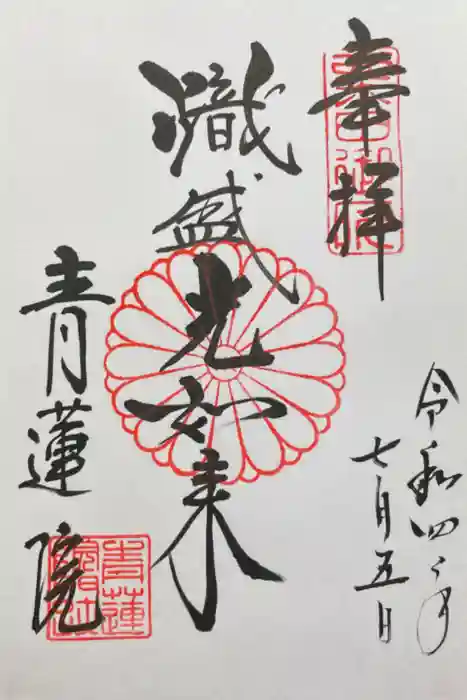 奉拝
令和四年
七月五日
熾盛光如来
青蓮院
青蓮